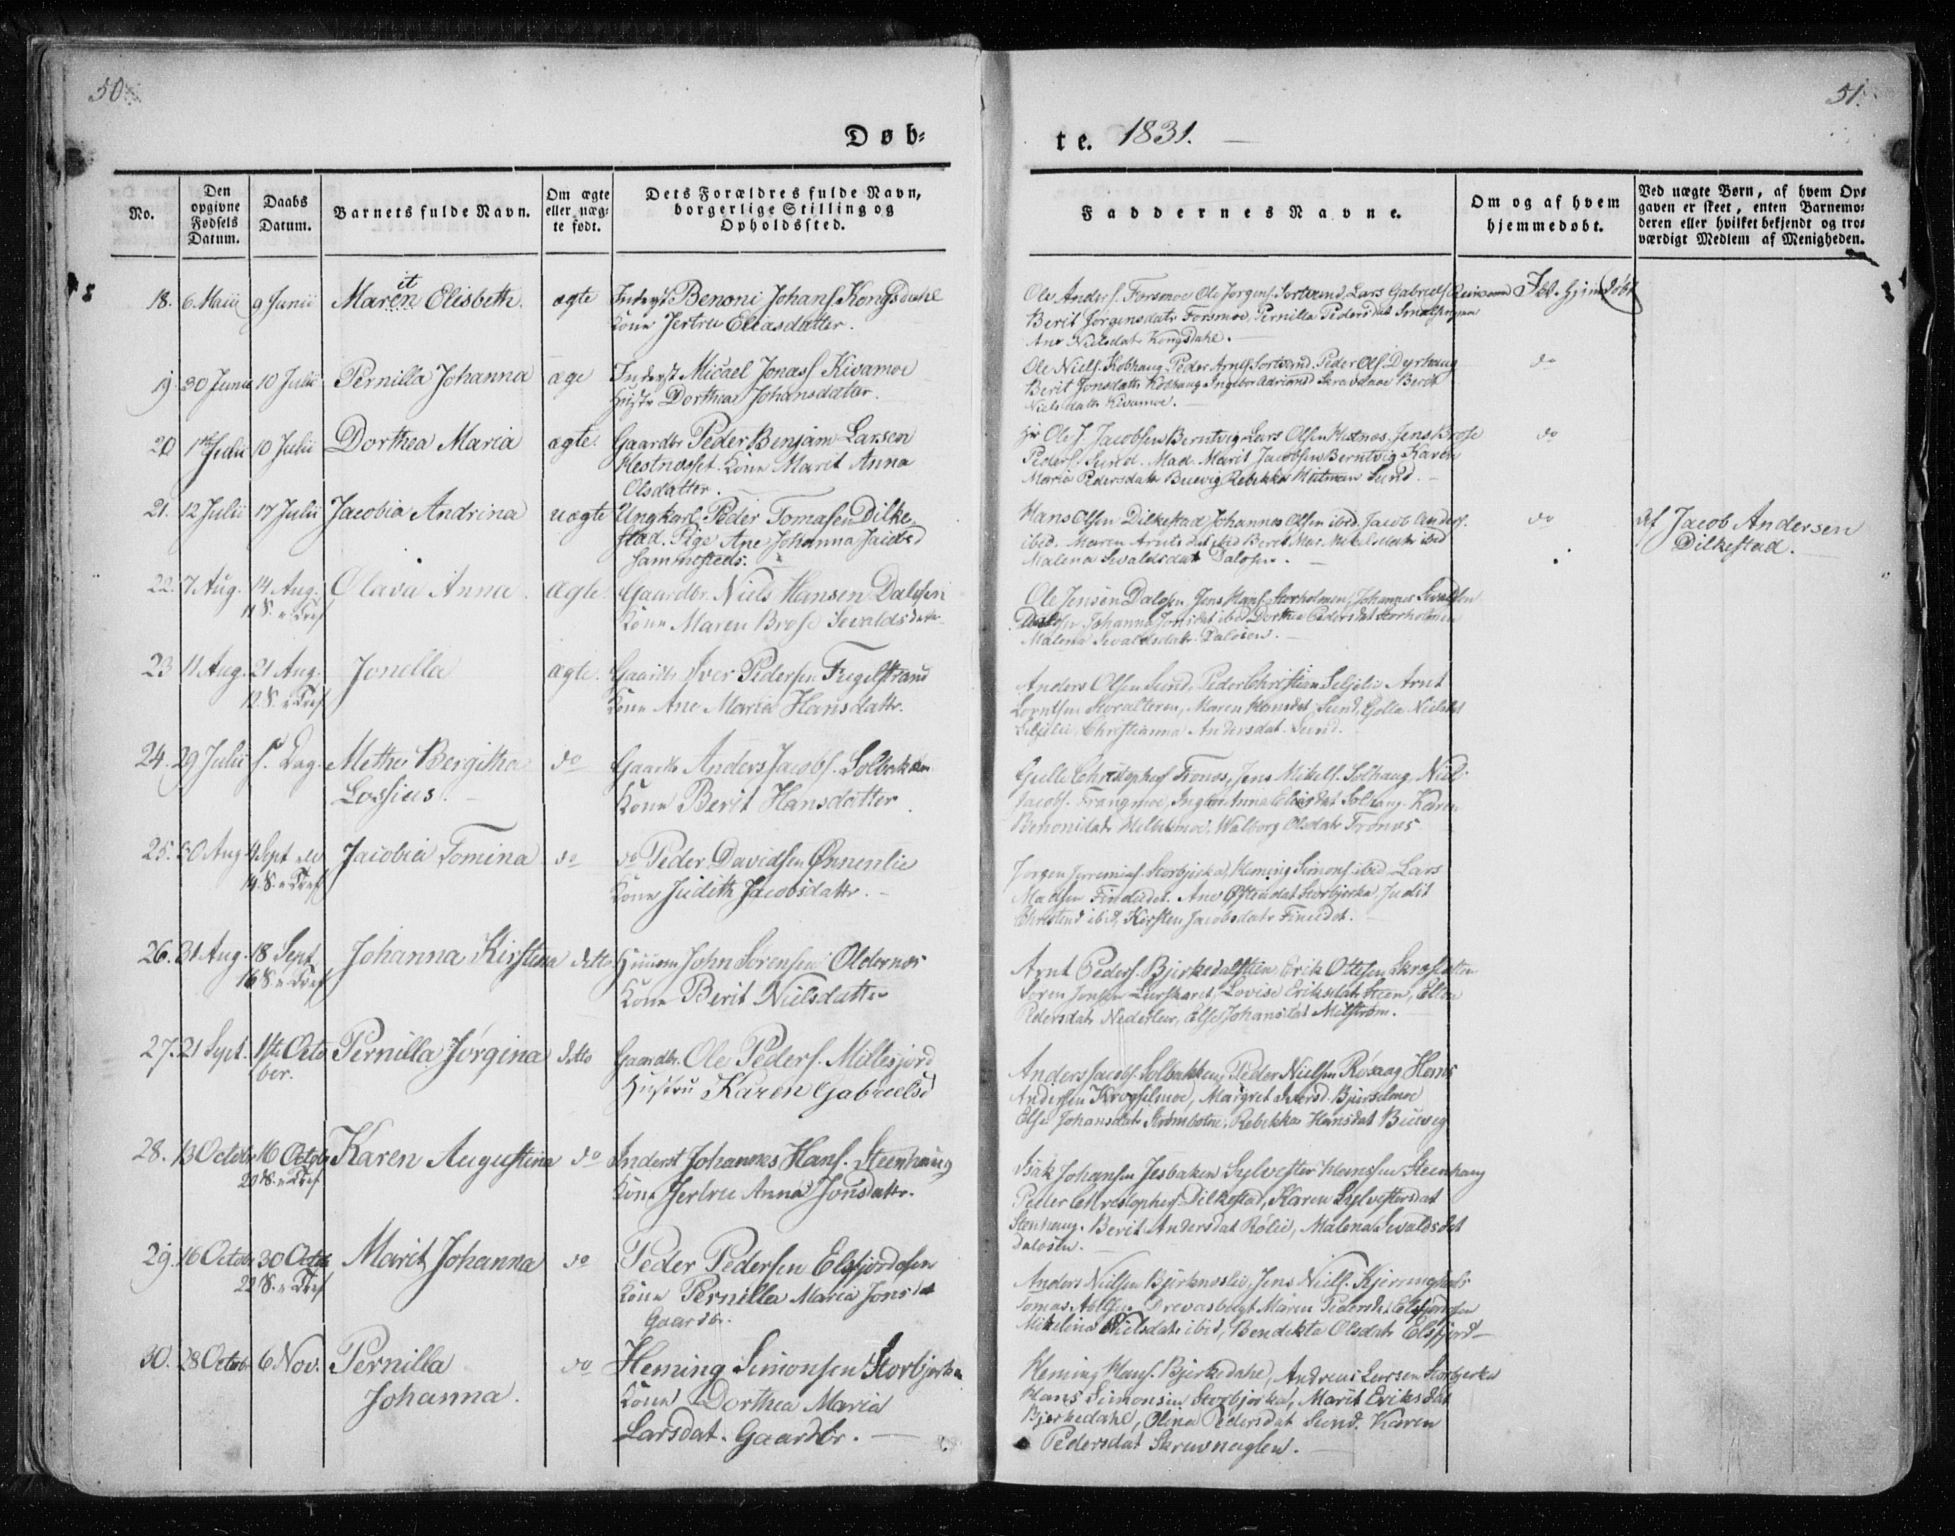 50.
51.
Døb-
te. 1831.
No.
Den opgivne Fødsels Datum.
Daabs Datum.
Barnets fulde Navn.
Om ægte eller uæg-te født.
Dets Forældres fulde Navn, borgerlige Stilling og Opholdssted.
Faddernes Navne.
Om og af hvem hjemmedøbt.
Ved uægte Børn, af hvem Op-gaven er skeet, enten Barnemo-deren eller hvilket bekjendt og tro-værdigt Medlem af Menigheden.
18. 6 Maii 9 Junii Maren Elisbeth. ægte Inderst Benoni Johans. Kongsdahl
it
Kone Jertru Eliasdatter.
Ole Anders. Forsmoe Ole Jørgens. Sortland, Lars Gabriels.
Berit Jørgensdatr Forsmoe, Pernilla Pedersdat
Ane Nielsdatr Kongsdahl.
19. 30 Junii 10 Julii Pernilla Johanna æge Inderst Micael Jonass. Kivamoe
Hustr Dorthea Johansdatar.
Ole Niels. Kobhaug Peder Arnts. Peder Ols. Dyrhaug
Berit Jonsdattr Kobhaug Berit
Nielsdattr Kivamoe.
do
20 1ste Julii 10 Julii Dorthea Maria ægte. Gaardbr Peder Benjam. Larsen
Hestnæsset. Kone Marit Anna
Olsdatter.
Hr Ole J. Jacobsen Berntvig Lars Olsen Hestnæs, Jens Brose
Peders. Sund. Mad. Marit Jacobsen Berntvig Karen
Maria Pedersdatr Buevig Rebekka Sund.
do
21. 12 Julii 17 Julii Jacobia Andrina uægte Ungkarl Peder Tomasen Dilke
stad. Pige Ane Johanna Jacobsd
Sammesteds.
Hans Olsen Dilkestad Johannes Olsen ibid. Jacob Anders.
ibid. Maren Arntsdat ibid Beret Mar. Mikelsdatr ibid
Malena Sivaldsdat Daløsen.
do
Af Jacob Andersen
Dilkestad.
22. 7 Aug. 14 Aug. Olava Anna ægte. Gaardbr. Niels Hansen Daløsen
11 S. e Tref
Kone Maren Brose Sevaldsdatr
Ole Jensen Daløsen Jens Hans. Storholmen, Johannes Sivaldsen
Daløsen Johanna Jonsdat ibid Dorthea Pedersdat Storholmen
Malena Sivaldsdatr Daløsen.
23 11 Aug. 21 Aug. Jonella ægte. Gaardb Iver Pedersen Fugelstrand
12 S. e Tref
Kone Ane Maria Hansdattr.
Anders Olsen Sund, Peder Christian Seljelie Arnt
Lorntsen Storalteren, Maren Hansdat Sund, Golla Nielsdat
Seljelie, Christianna Andersdat. Sund.
24. 29 Julii s. Dag. Methe Bergitha do Gaardb Anders Jacobs. Solbakken
Lossius.
Kone Berit Hansdatter
Gulle Christophers. Trones, Jens Mikels. Solhaug, Niel
Jacobs. Trangmoe, Ingbor Anna Eliasdat Solhaug. Karen
Benonisdatr Walborg Olsdatr Trones
25. 30 Aug 4 Sept Jacobia Tomina do do Peder Davidsen Ønnenlie
14 S. e Tref
Kone Judith Jacobsdattr.
Jørgen Jeremias. Storbjerka, Heming Simons. ibid, Lars
Madsen Finedet. Ane Storbjerka, Judit
Christend ibid, Kirsten Jacobsdatr Finedet.
26. 31 Aug. 18 Sept. Johanna Kirstina detto John Sørensen Oldernæs
16 S. e Tref
Kone Berit Nielsdatter
Arnt Peders. Bjerkedalstien Erik Ottesen
Søren Jonsen Lovise Eriksdatr Steen, Ellen
Pedersdatr Nederleir, Else Johansdat
27. 21 Sept. 1ste Octo Pernilla Jørgina detto Gaardbr. Ole Peders. Millesjord
ber.
Hustru Karen Gabrielsd
Anders Jacobs. Solbakken, Peder Nielsen Røsaag Hans
Andersen Margret Iversd. Bjerselmoe
Else Johansdatr Strømbotn, Rebekka Hansdat Buevig
28. 13 Octobr 16 Octobr Karen Augustina do Inderst Johannes Hans. Steenhaug
20 S. e Tref
Kone Jertru Anna Jonsdattr.
Isak Johansen Jesbaken Sylvester Hansen Steenhaug
Peder Christophers. Dilkestad, Karen Sylvestersdat
Stenhaug. Berit Andersdat Rølie, Malena Sivaldsdat
Daløsen.
29. 16 Octobr 30 Octob Marit Johanna do Peder Pedersen Elsfjordosen
22 S. e Tref
Kone Pernilla Maria Jonsdat
Gaardbr.
Anders Nielsen Jens Niels.
Tomas Abelsen Drevasbugt Maren Pedersdat Elsfjordosen
Mikelina Nielsdatr ibid, Bendikta Olsdatr Elsfjord
30. 28 Octob 6 Nov. Pernilla do Heming Simonsen Storbjerka
Johanna.
Kone Dorthea Maria
Larsdat. Gaardbr.
Heming Hans. Bjerkedahl, Andreas Larsen Storbjerka
Hans Simonsen Storbjerka, Marit Eriksdat
Bjerkedahl, Olina Pedersdat Sund. Karen
Pedersdat Skruvnaglen.